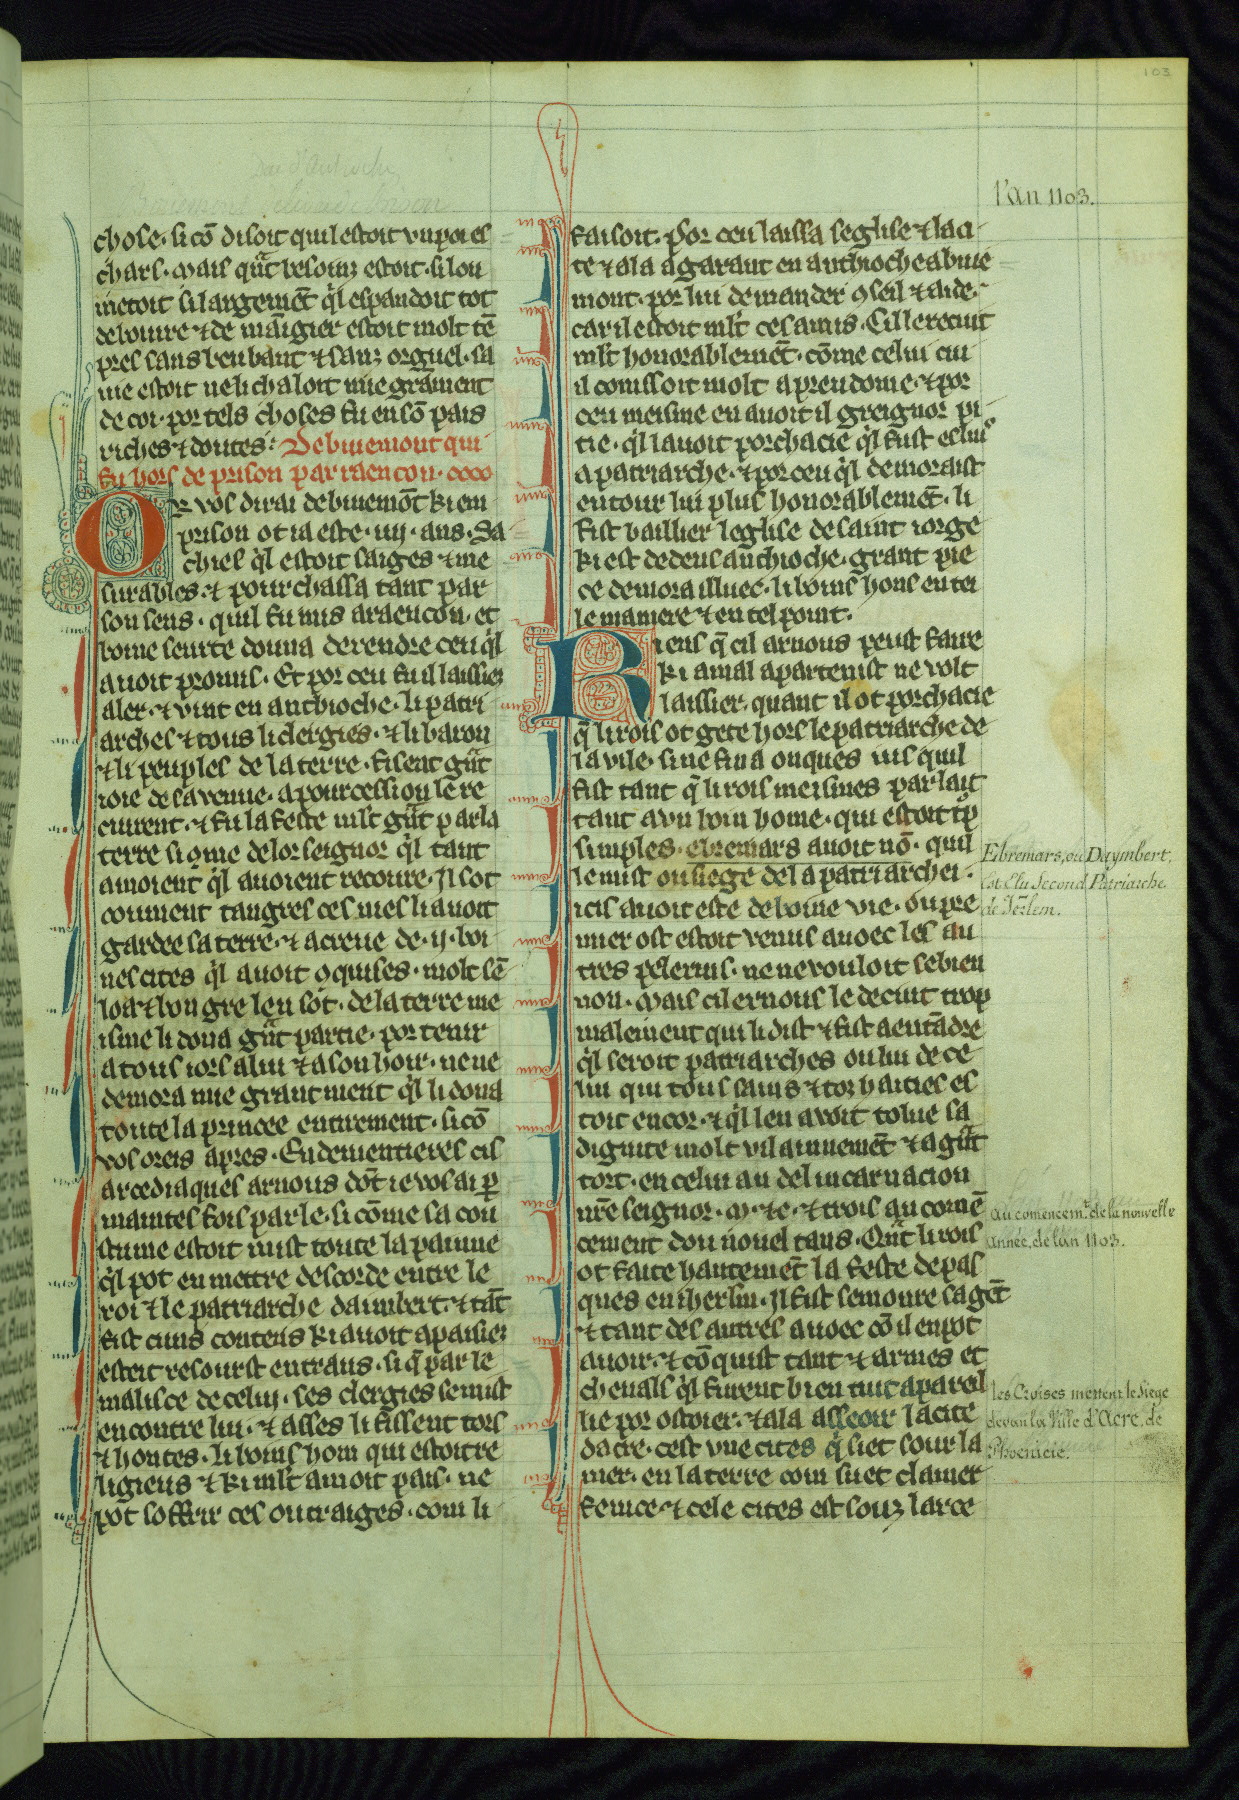 103
l'an 1103.
chose. si cō disoit quil estoit vn poi es
chars. mais qu̅t besoinz estoit. si lou
metoit si largemēt q̓l espandoit tot
de boivre ⁊ de māgier estoit molt tē
pres sans beubant ⁊ sanz orguel. sa
vie estoit ne li chaloit mie grāment
de cor. por tels choses fu en sō pais
riches ⁊ doutes. De buiemont qui
fu hors de prison par raencon.
Or vos dirai de buiemōt ki en
prison ot ia este .iiij. ans. Sa
chies q̓l estoit saiges ⁊ me
surables. ⁊ pourchassa tant par
son sens. quil fu mis a raencon. et
boine seurte donna de rendre ceu q̓l
auoit promis. Et por ceu fu il laissiez
aler. ⁊ vint en anthioche. li patri
arches ⁊ tous li clergies. ⁊ li baron
⁊ li peuples de la terre. fisent gūt
ioie de sa venue. a pourcession lē re
ciurent. ⁊ fu la feste mlt gūt par la
terre si ꝯme de lor seignor q̓l tant
amoient q̓l auoient recoure. Il sot
coument tangres ces nies li auoit
gardee sa terre. ⁊ acreue de .ij. boi
nes cites q̓l auoit ꝯquises. molt sē
loa ⁊ bon gre len sot. de la terre me
isme li dona gūt partie. por tenir
a tous iors a lui ⁊ a son hoir. ne ne
demora mie grantment q̓l li dona
toute la princee entirement. si cō
vos oreis apres. Endementieres cis
arcediaques arnous dōt ie vos ai ꝑ
maintes fois parle. si cōme sa cou
stume estoit mist toute la painne
q̓l pot en mettre descorde entre le
roi ⁊ le patriarche daimbert. ⁊ tāt
fist cinis contens ki auoit apaisiez
esteit resourst entraus. si q̄ par le
malisce de celui. ses clergies se mist
encontre lui. ⁊ asses li fissent tors
⁊ hontes. li boins hom qui estoit re
ligieus ⁊ ki mlt amoit pais. ne
pot soffrir ces outraiges. com li
faisoit. Por ceu laissa seglise ⁊ la ci
te ⁊ ala a garant en anthioche a buie
mont. por lui demander ꝯseil ⁊ aide.
car il estoit mlt ces amis. Cil le reciut
mlt honorablemēt. cōme celui cui
il conissoit molt a preudome. ⁊ por
ceu meisme en auoit il greignor pi
tie. q̓l lauoit porchacie q̓l fust eslius
a patriarche. ⁊ por ceu q̓l demoraist
entour lui plus honorablemēt. li
fist baillier leglise de saint iorge
ki est dedens anthioche. grant pie
ce demora illuec. li boins hons en tei
le maniere ⁊ en tel point.
Riens q̄ cil arnous peust faire
ki a mal apartenist ne volt
laissier. quant il ot porchacie
q̄ li rois ot gete hors le patriarche de
la vile. si ne fina onques ius quil
fist tant q̄ li rois meismes par lait
tant a vn boin home. qui estoit tp̄
simples. ebremars auoit nō. quil
le mist ou siege de la patriarchei.
icis auoit este de boine vie. ou pre
mier ost estoit venus auoec les au
tres pelerins. ne ne vouloit se bien
non. Mais cil ernous le deciut trop
malement qui li dist ⁊ fist a entādre
q̓l seroit patriarches ou liu de ce
lui qui tous sains ⁊ toz haities es
toit encor. ⁊ q̓l len avoit tolue sa
dignite molt vilainnemēt ⁊ a gūt
tort. en celui an del incarnacion
nr̄e seignor. m. ⁊ c. ⁊ trois au comē
cement dou nouel tans. Qn̄t li rois
ot faite hautemēt la feste de pas
ques en iherlm. Il fist semonre sa gēt
⁊ tant des autres auoec cō il en pot
auoir. ⁊ cōquist tant ⁊ armes et
cheuals q̓l furent bien tuit apareil
lie por ostoier. ⁊ ala asseoir la cite
dacre. cest vne cites q̄ siet sour la
mer. en la terre com suet clamer
fenice. ⁊ cele cites est souz larce
Ebremars, ou Daymbert,
est Elu Second Patriarche
de Jérlem.
au comencemt. de la nouvelle
année, de l'an 1103.
les Croises, mettent le Siege
devan la Ville d'Acre, de
Phoenicie.